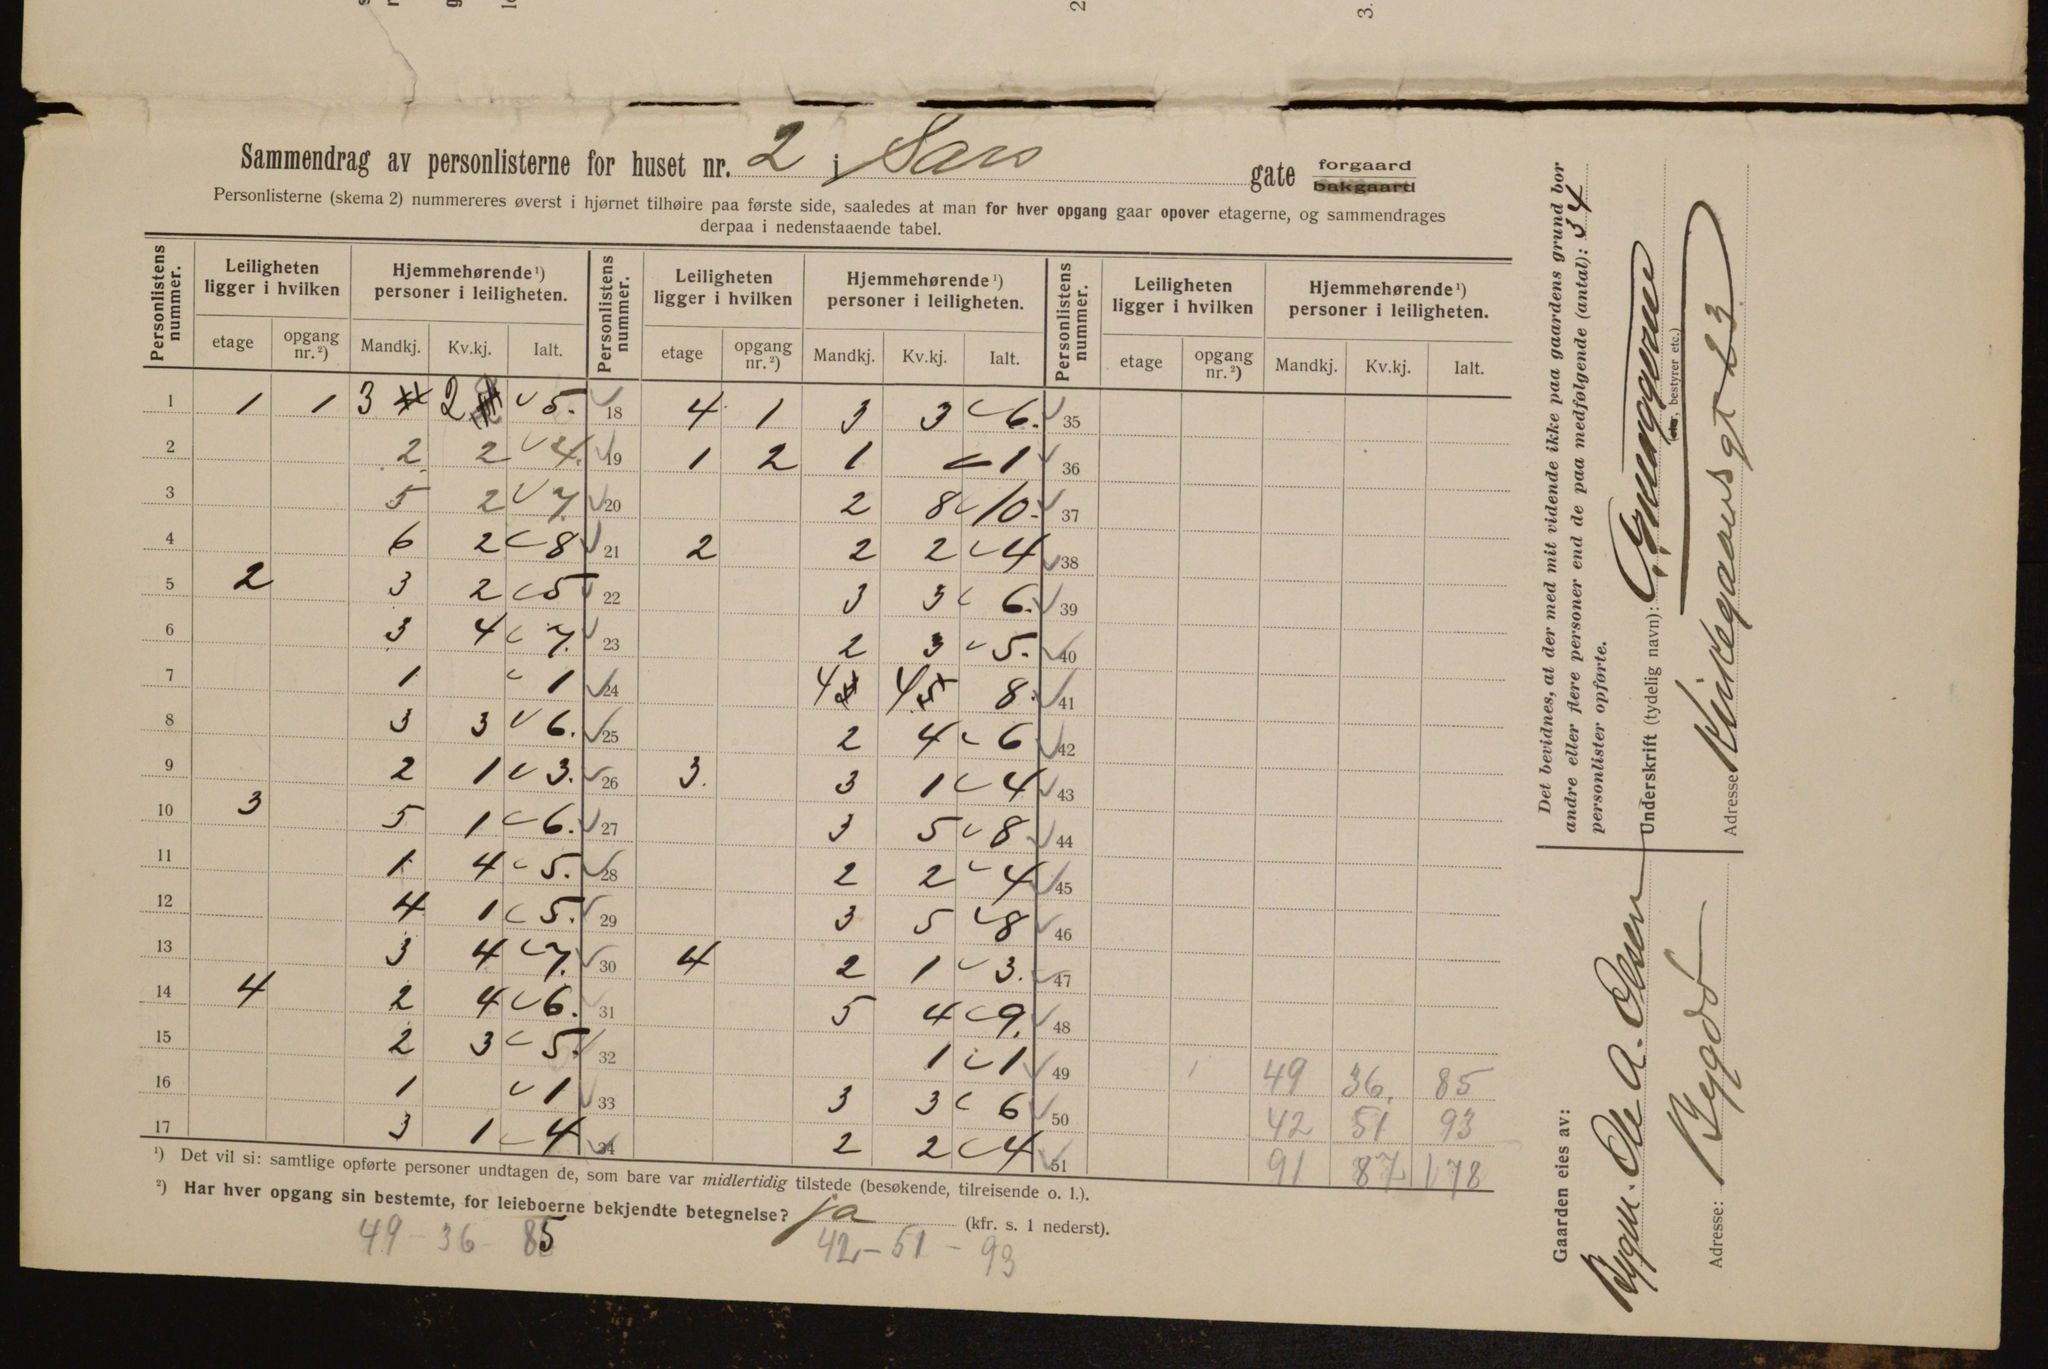 Sammendrag av personlisterne for huset nr. 2 i Sars gate forgaard bakgaard
Personlisterne (skema 2) nummereres øverst i hjørnet tilhøire paa første side, saaledes at man for hver opgang gaar opover etagerne, og sammendrages
derpaa i nedenstaaende tabel.
Personlistens nummer. Leiligheten ligger i hvilken Hjemmehørende¹) personer i leiligheten. Personlistens nummer. Leiligheten ligger i hvilken Hjemmehørende¹) personer i leiligheten. Personlistens nummer. Leiligheten ligger i hvilken Hjemmehørende¹) personer i leiligheten.
etage opgang nr.²) Mandkj. Kv.kj. Ialt. etage opgang nr.²) Mandkj. Kv.kj. Ialt. etage opgang nr.²) Mandkj. Kv.kj. Ialt.
1 1 1 3 2 5. 18 4 1 3 3 6. 35
2 2 2 4. 19 1 2 1 1 36
3 5 2 7. 20 2 8 10. 37
4 6 2 8 21 2 2 2 4 38
5 2 3 2 5 22 3 3 6. 39
6 3 4 7. 23 2 3 5. 40
7 1 1 24 4 4 8. 41
8 3 3 6. 25 2 4 6 42
9 2 1 3. 26 3. 3 1 4 43
10 3 5 1 6. 27 3 5 8 44
11 1 4 5. 28 2 2 4 45
12 4 1 5. 29 3 5 8 46
13 3 4 7. 30 4 2 1 3. 47
14 4 2 4 6. 31 5 4 9. 48
15 2 3 5. 32 1 1 49 49 36. 85
16 1 1 33 3 3 6 50 42 51 93
17 3 1 4 34 2 2 4 51 91 87 178
¹) Det vil si: samtlige opførte personer undtagen de, som bare var midlertidig tilstede (besøkende, tilreisende o. l.).
²) Har hver opgang sin bestemte, for leieboerne bekjendte betegnelse? ja (kfr. s. 1 nederst).
49 - 36 - 85 42 - 51 - 93
Det bevidnes, at der med mit vidende ikke paa gaardens grund bor
andre eller flere personer end de paa medfølgende (antal): 34
personlister opførte.
Underskrift (tydelig navn):
bestyrer etc.)
Adresse Kirkegaardsgt 23
Gaarden eies av:
Bygm. Ole A. Olsen
Adresse: Bygdø
2
3.